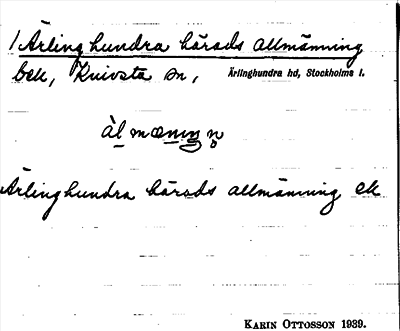 1 Ärlinghundra härads allmänning
bek, Knivsta sn, Ärlinghundra hd, Stockholms l.
àlmæniŋ
Ärlinghundra härads allmänning ek
KARIN OTTOSSON 1939.